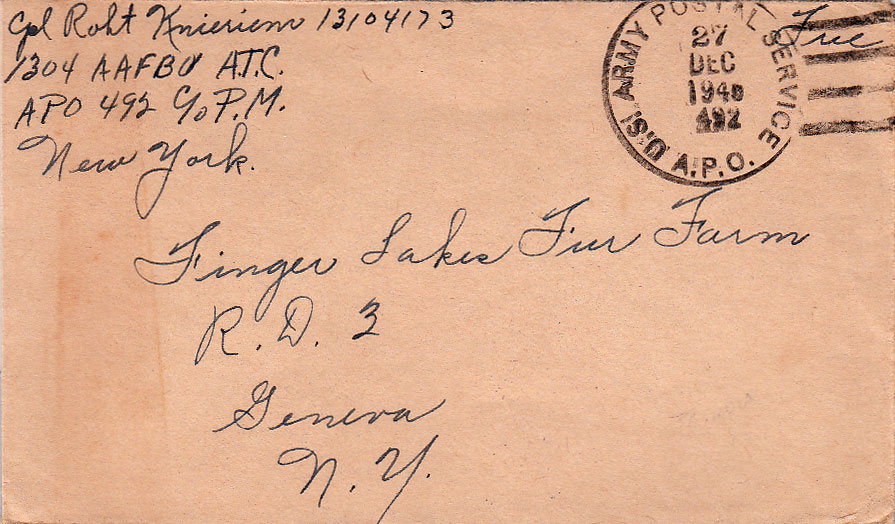 Cpl Robt Knieriem 13104173
1304 AAFBU A.T.C.
APO 492 C/o P.M.
New York.
Free
U.S. ARMY POSTAL SERVICE
27
DEC
194
492
A.P.O.
Finger Lakes Fur Farm
R. D. 3
Geneva
N. Y.